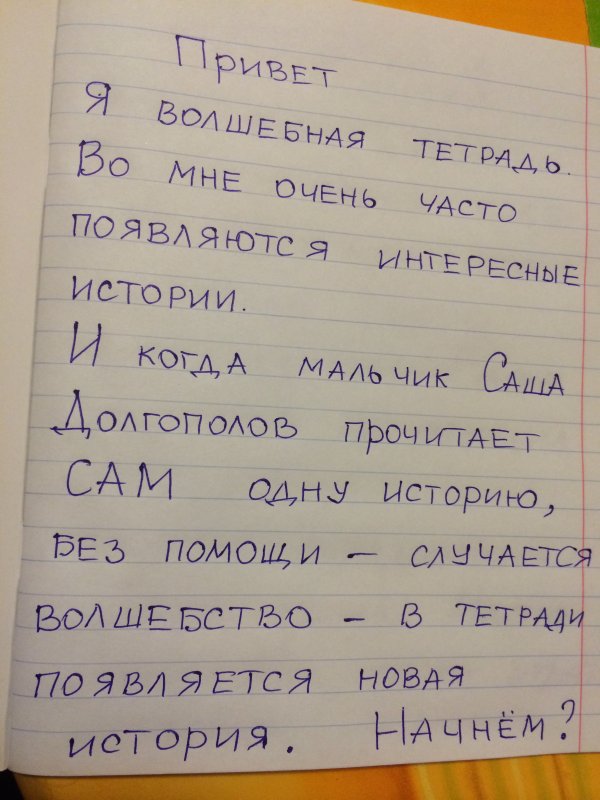 Привет
Я волшебная тетрадь.
Во мне очень часто
появляются интересные
истории.
И когда мальчик Саша
Долгополов прочитает
САМ одну историю,
без помощи – случается
волшебство – в тетради
появляется новая
история. Начнём?